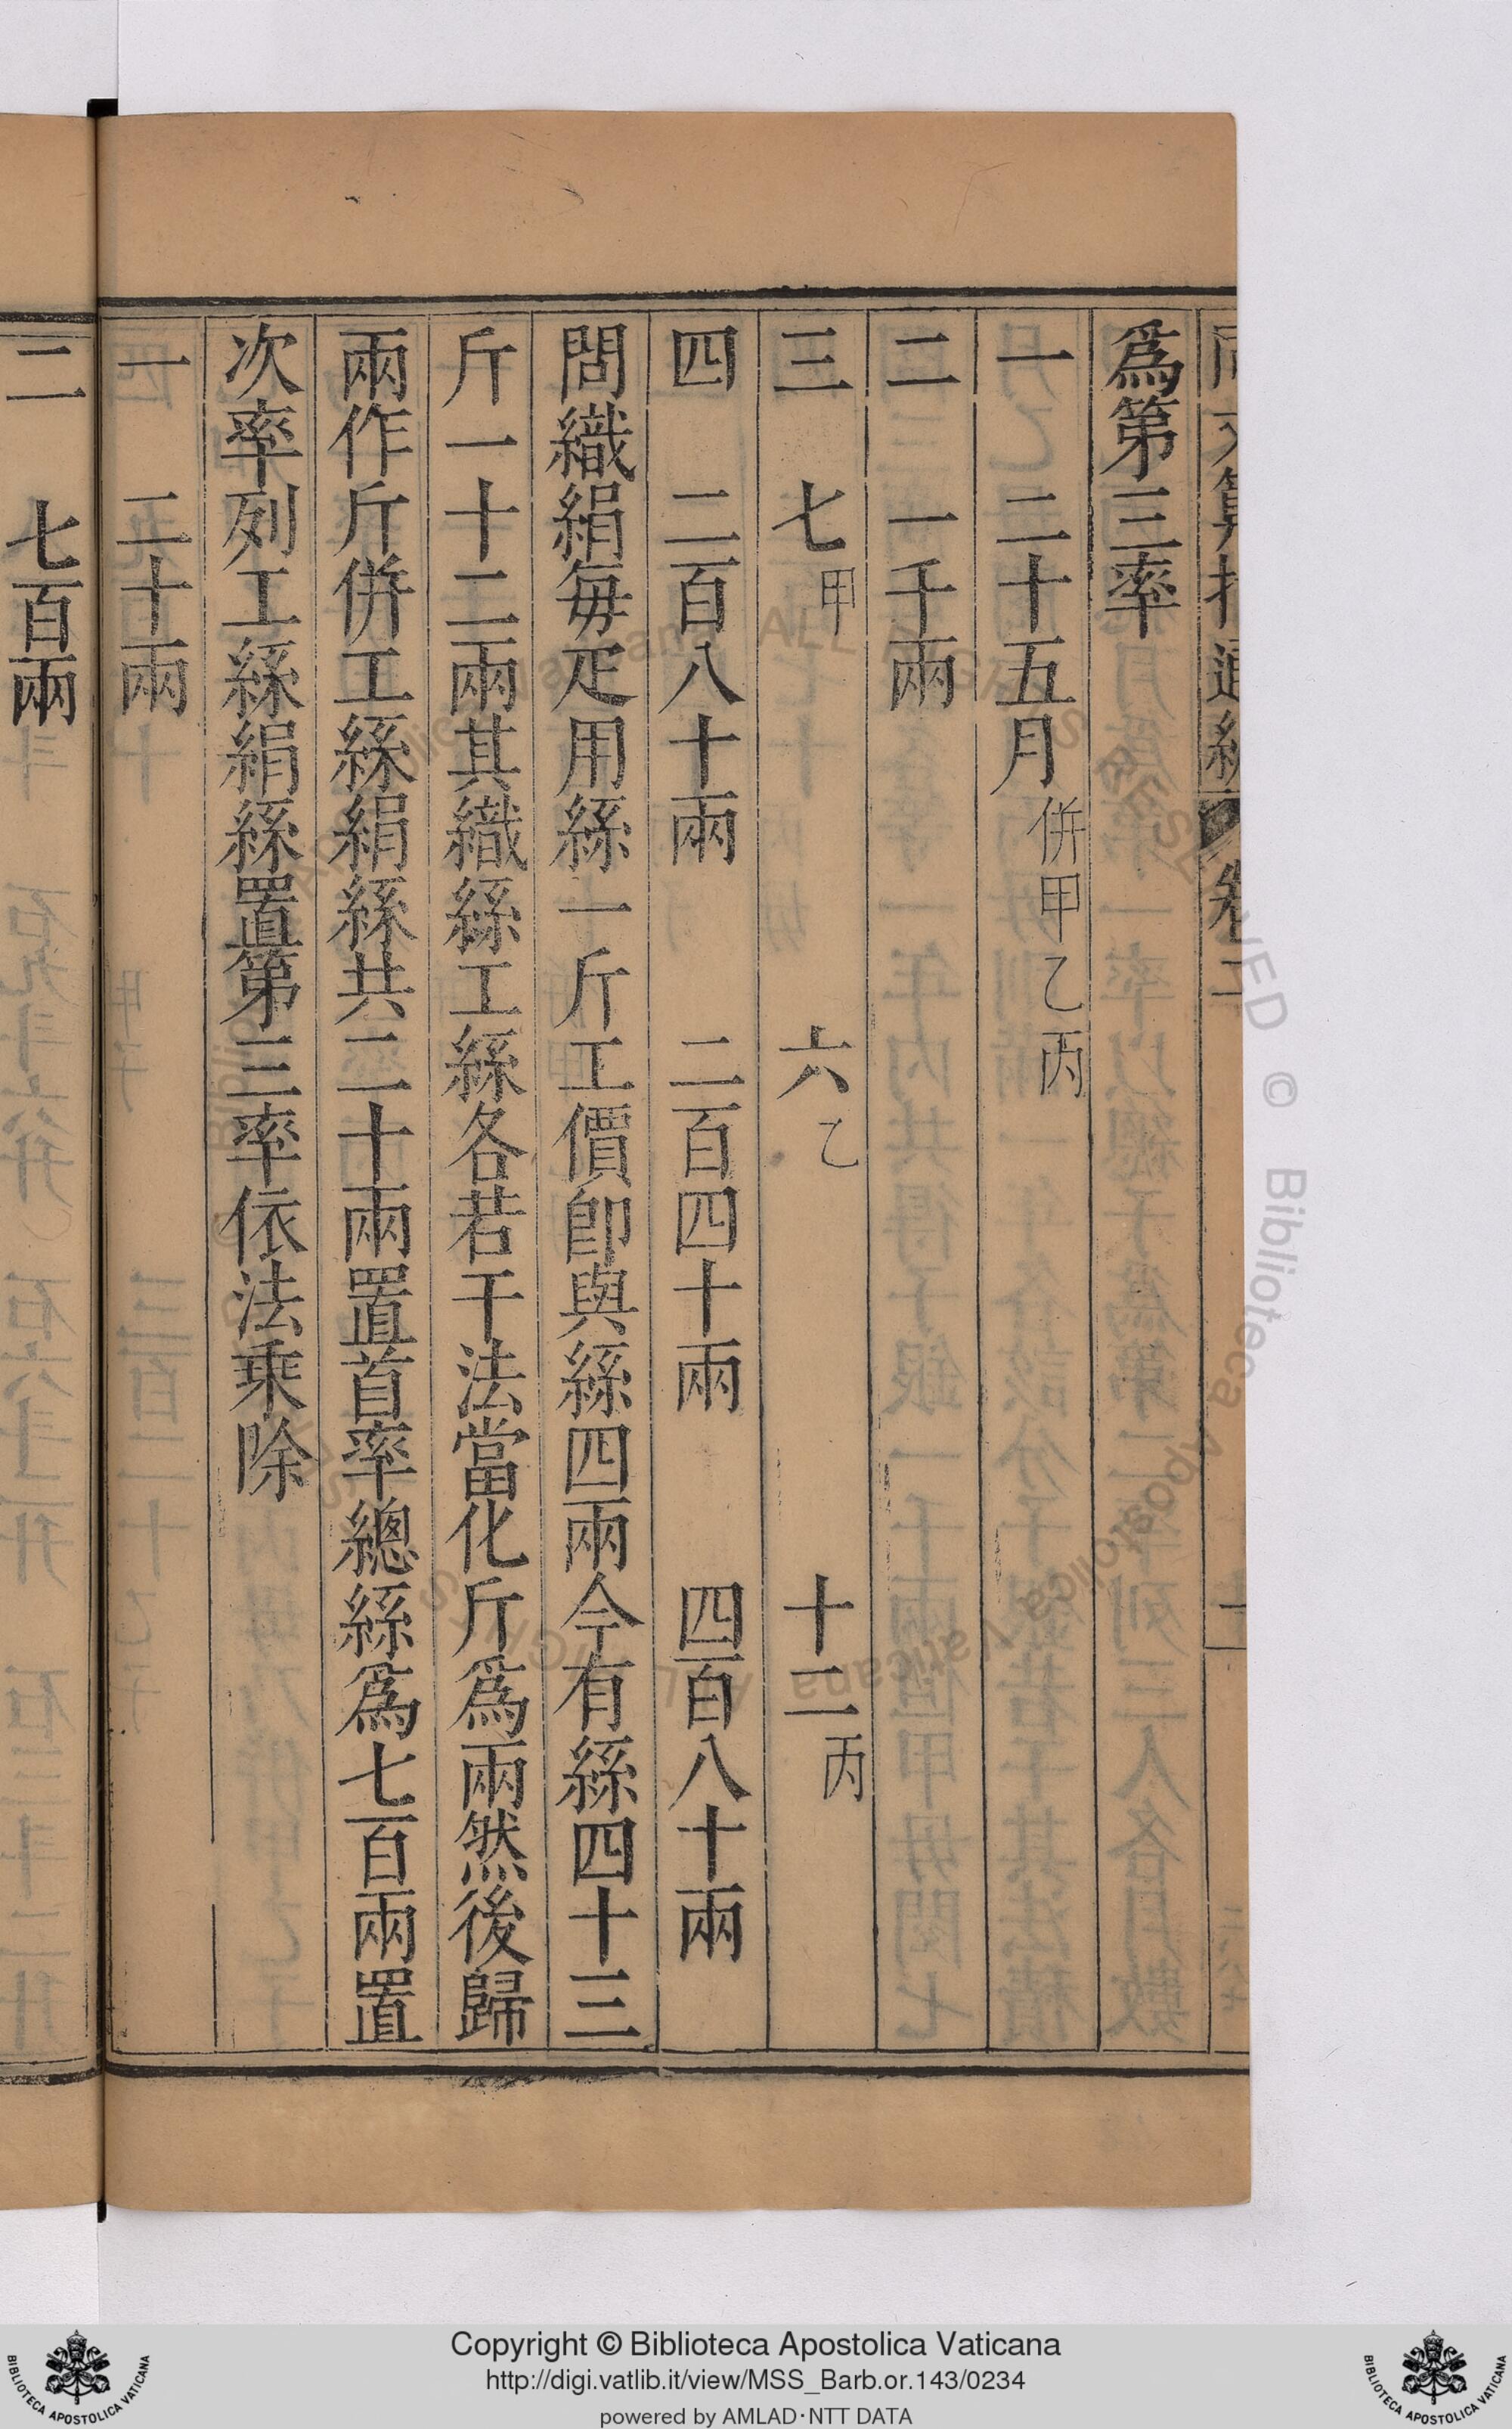 爲第三率
一　二十五月 併甲乙丙
二　一千兩
三　七 甲　六 乙　十二 丙
四　二百八十兩　二百四十兩　四百八十兩
問織絹每疋用絲一斤工價卽與絲四兩今有絲四十三
斤一十二兩其織絲工絲各若干法當化斤爲兩然後歸
兩作斤併工絲絹絲共二十兩置首率總絲爲七百兩置
次率列工絲絹絲置第三率依法乘除
一　二十兩
二　七百兩
Copyright © Biblioteca Apostolica Vaticana
http://digi.vatlib.it/view/MSS_Barb.or.143/0234
powered by AMLAD·NTT DATA
BIBLIOTECA APOSTOLICA VATICANA
BIBLIOTECA APOSTOLICA VATICANA